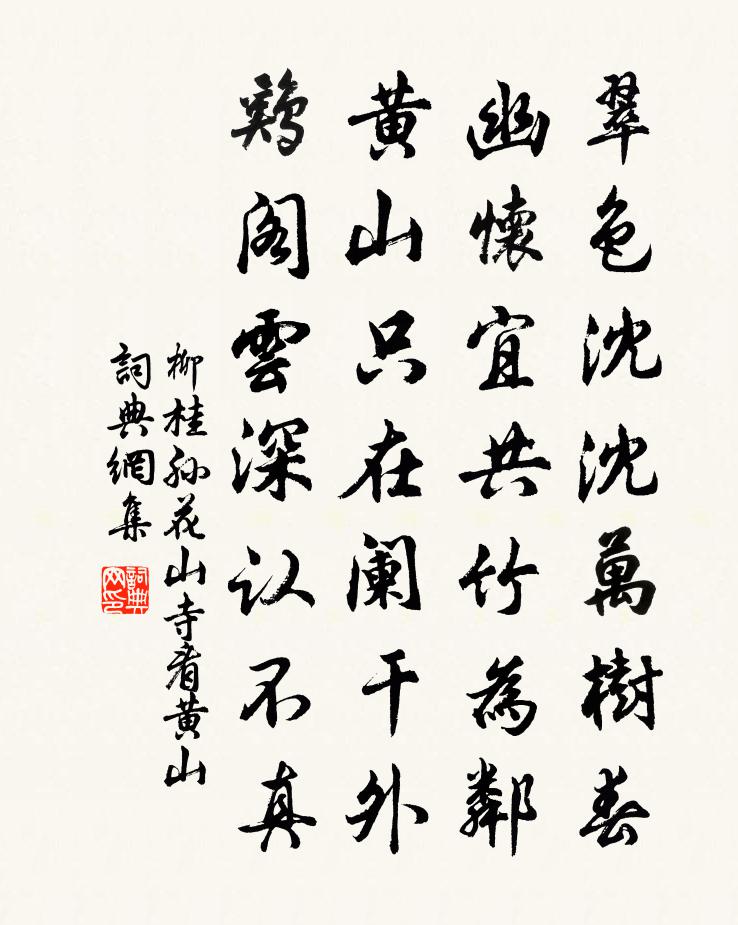 翠色沈沈萬樹春
幽懷宜共竹為鄰
黃山只在阑干外
鷄阁雲深认不真
柳桂孙花山寺看黄山
詞典網集
詞典
网印